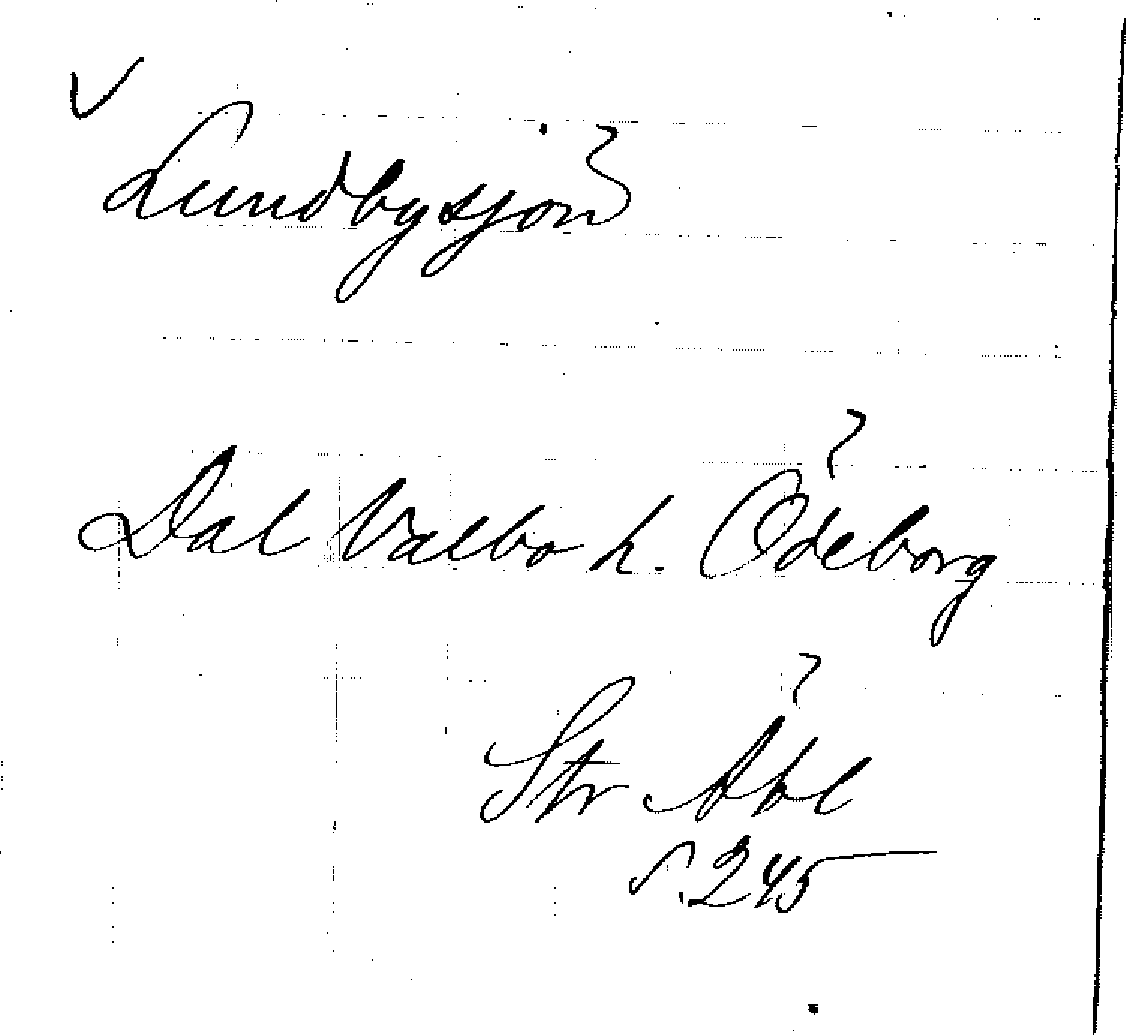 Lundbysjön
Dal Valbo h. Ödeborg
Str
s. 245